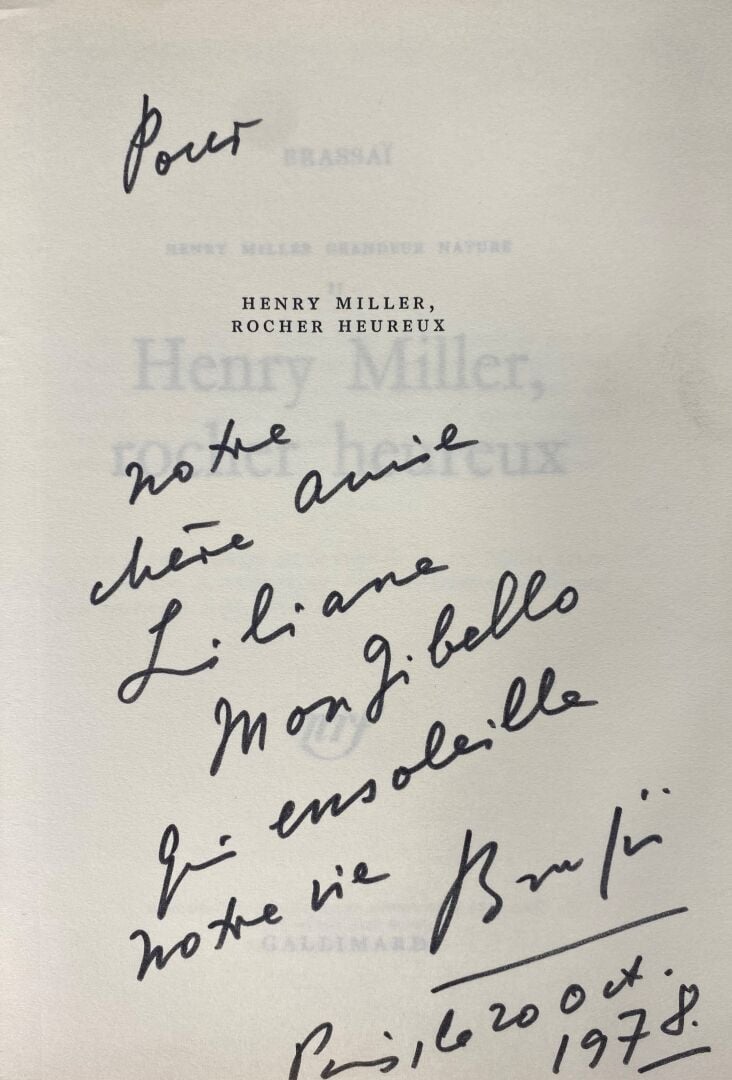 Pour
BRASSAÏ
HENRY MILLER GRANDEUR NATURE
II
HENRY MILLER,
ROCHER HEUREUX
Henry Miller,
rocher heureux
notre
chère amie
Liliane
Mongibello
nrf
qui ensoleille
notre vie Brassaï
GALLIMARD
Paris, le 20 Oct.
1978.